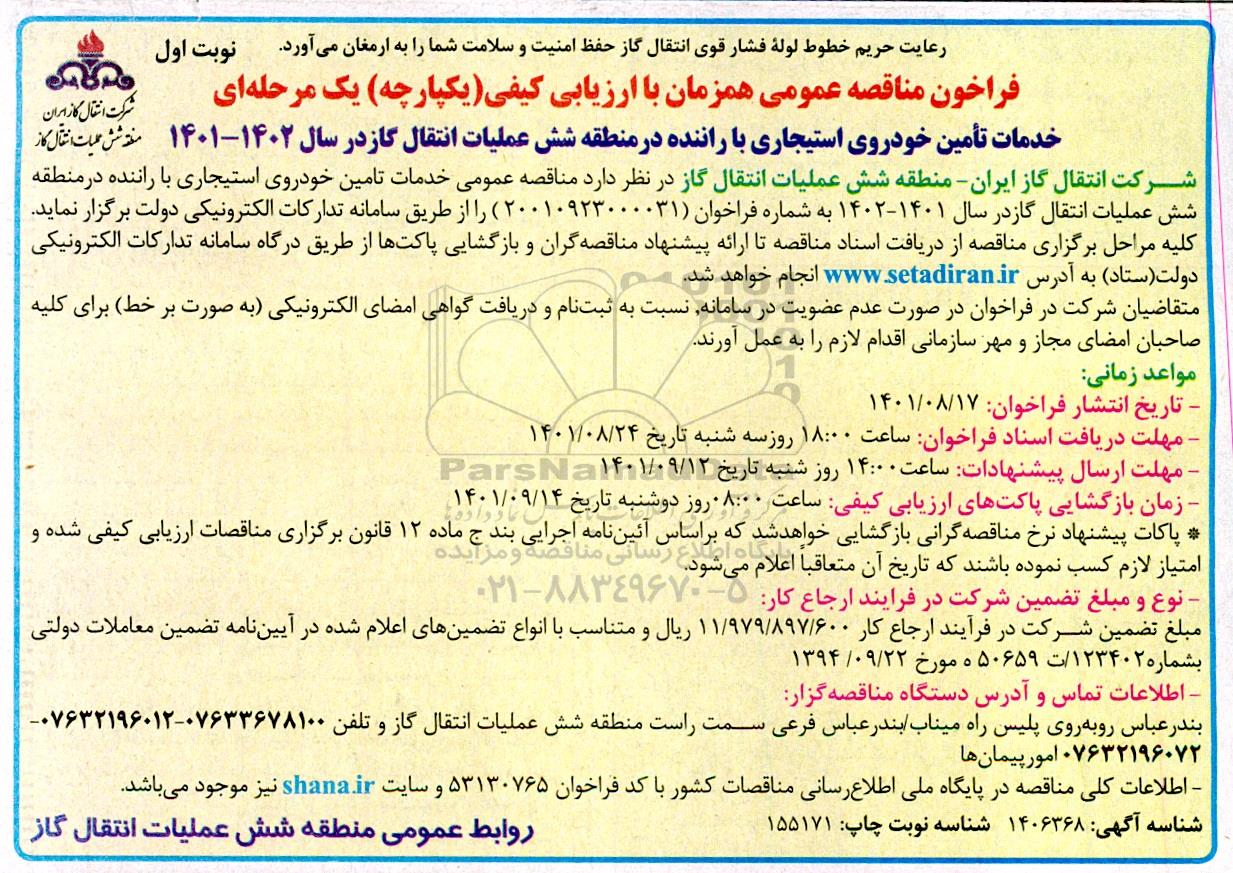 رعایت حریم خطوط لولهٔ فشار قوی انتقال گاز حفظ امنیت و سلامت شما را به ارمغان می‌آورد.
نوبت اول
شرکت انتقال گاز ایران
منطقه شش عملیات انتقال گاز
فراخون مناقصه عمومی همزمان با ارزیابی کیفی(یکپارچه) یک مرحله‌ای
خدمات تأمین خودروی استیجاری با راننده درمنطقه شش عملیات انتقال گازدر سال ۱۴۰۲-۱۴۰۱
شـــرکت انتقال گاز ایران- منطقه شش عملیات انتقال گاز در نظر دارد مناقصه عمومی خدمات تامین خودروی استیجاری با راننده درمنطقه
شش عملیات انتقال گازدر سال ۱۴۰۱-۱۴۰۲ به شماره فراخوان (۲۰۰۱۰۹۲۳۰۰۰۰۳۱) را از طریق سامانه تدارکات الکترونیکی دولت برگزار نماید.
کلیه مراحل برگزاری مناقصه از دریافت اسناد مناقصه تا ارائه پیشنهاد مناقصه‌گران و بازگشایی پاکت‌ها از طریق درگاه سامانه تدارکات الکترونیکی
دولت(ستاد) به آدرس www.setadiran.ir انجام خواهد شد.
متقاضیان شرکت در فراخوان در صورت عدم عضویت در سامانه، نسبت به ثبت‌نام و دریافت گواهی امضای الکترونیکی (به صورت بر خط) برای کلیه
صاحبان امضای مجاز و مهر سازمانی اقدام لازم را به عمل آورند.
مواعد زمانی:
- تاریخ انتشار فراخوان: ۱۴۰۱/۰۸/۱۷
- مهلت دریافت اسناد فراخوان: ساعت ۱۸:۰۰ روزسه شنبه تاریخ ۱۴۰۱/۰۸/۲۴
- مهلت ارسال پیشنهادات: ساعت۱۴:۰۰ روز شنبه تاریخ ۱۴۰۱/۰۹/۱۲
- زمان بازگشایی پاکت‌های ارزیابی کیفی: ساعت ۰۸:۰۰روز دوشنبه تاریخ ۱۴۰۱/۰۹/۱۴
* پاکات پیشنهاد نرخ مناقصه‌گرانی بازگشایی خواهدشد که براساس آئین‌نامه اجرایی بند ج ماده ۱۲ قانون برگزاری مناقصات ارزیابی کیفی شده و
امتیاز لازم کسب نموده باشند که تاریخ آن متعاقباً اعلام می‌شود.
- نوع و مبلغ تضمین شرکت در فرایند ارجاع کار:
مبلغ تضمین شـــرکت در فرآیند ارجاع کار ۱۱/۹۷۹/۸۹۷/۶۰۰ ریال و متناسب با انواع تضمین‌های اعلام شده در آیین‌نامه تضمین معاملات دولتی
بشماره۱۲۳۴۰۲/ت ۵۰۶۵۹ ه مورخ ۱۳۹۴ /۰۹/۲۲
- اطلاعات تماس و آدرس دستگاه مناقصه‌گزار:
بندرعباس روبه‌روی پلیس راه میناب/بندرعباس فرعی ســـمت راست منطقه شش عملیات انتقال گاز و تلفن ۰۷۶۳۳۶۷۸۱۰۰-۰۷۶۳۲۱۹۶۰۱۲-
۰۷۶۳۲۱۹۶۰۷۲ امورپیمان‌ها
- اطلاعات کلی مناقصه در پایگاه ملی اطلاع‌رسانی مناقصات کشور با کد فراخوان ۵۳۱۳۰۷۶۵ و سایت shana.ir نیز موجود می‌باشد.
شناسه آگهی: ۱۴۰۶۳۶۸ شناسه نوبت چاپ: ۱۵۵۱۷۱
روابط عمومی منطقه شش عملیات انتقال گاز
ParsNamadData
پایگاه اطلاع رسانی مناقصه و مزایده
۰۲۱-۸۸۳۴۹۶۷۰-۵